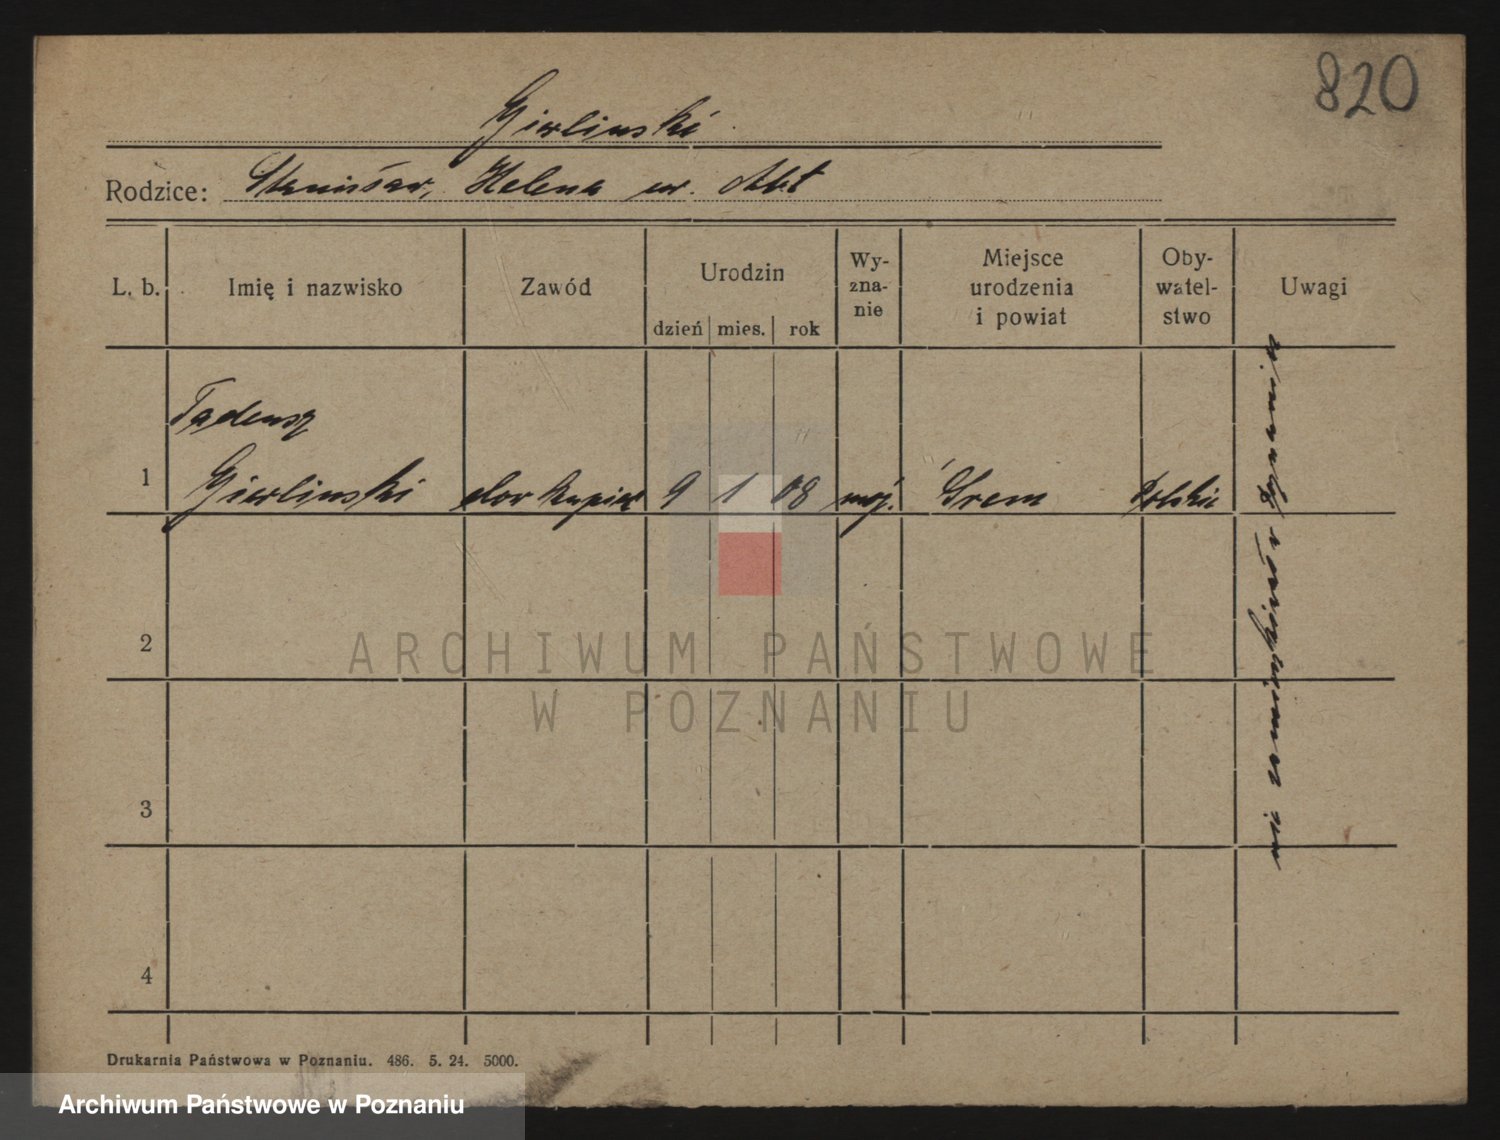 820
Gierlinski
Rodzice: Stanisław, Helena ur. Abt
L. b. Imię i nazwisko Zawód Urodzin Wy-
zna-
nie Miejsce
urodzenia
i powiat Oby-
watel-
stwo Uwagi
dzień mies. rok
Tadeusz
1 Gierlinski 9 1 08 Śrem Polskie
2
3
4
nie zamieszkiwał w Poznaniu
ARCHIWUM PAŃSTWOWE
W POZNANIU
Drukarnia Państwowa w Poznaniu. 486. 5. 24. 5000.
Archiwum Państwowe w Poznaniu